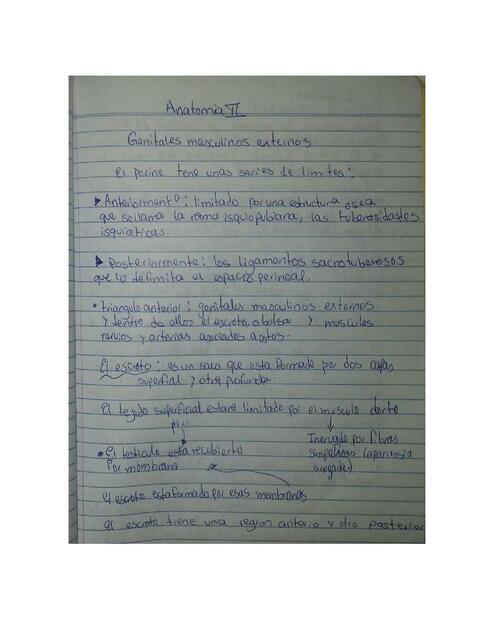 Anatomia II
Genitales masculinos externos
El perine tene unas series de limites:
▶ Anteriormente: limitado por una estructura osea
que se llama la rama isquiopubiana, las tuberosidades
isquiaticas.
▶ Posteriormente: los ligamentos sacrotuberosos
que delimita el espacio perineal.
• triangulo anterior: genitales masculinos externos
y dentro de ellos el escroto, o bolsa y musculos
nervios y arterias asociados a estos.
El escroto: es un saco que esta formado por dos capas
superfial y otra profunda.
El tejido superficial estara limitado por el musculo
piel
Inervado por fibras
• El testiculo esta recubierto
por membrana
el escroto esta formado por esas membranas
el escroto tiene una region anterio y otro posterior